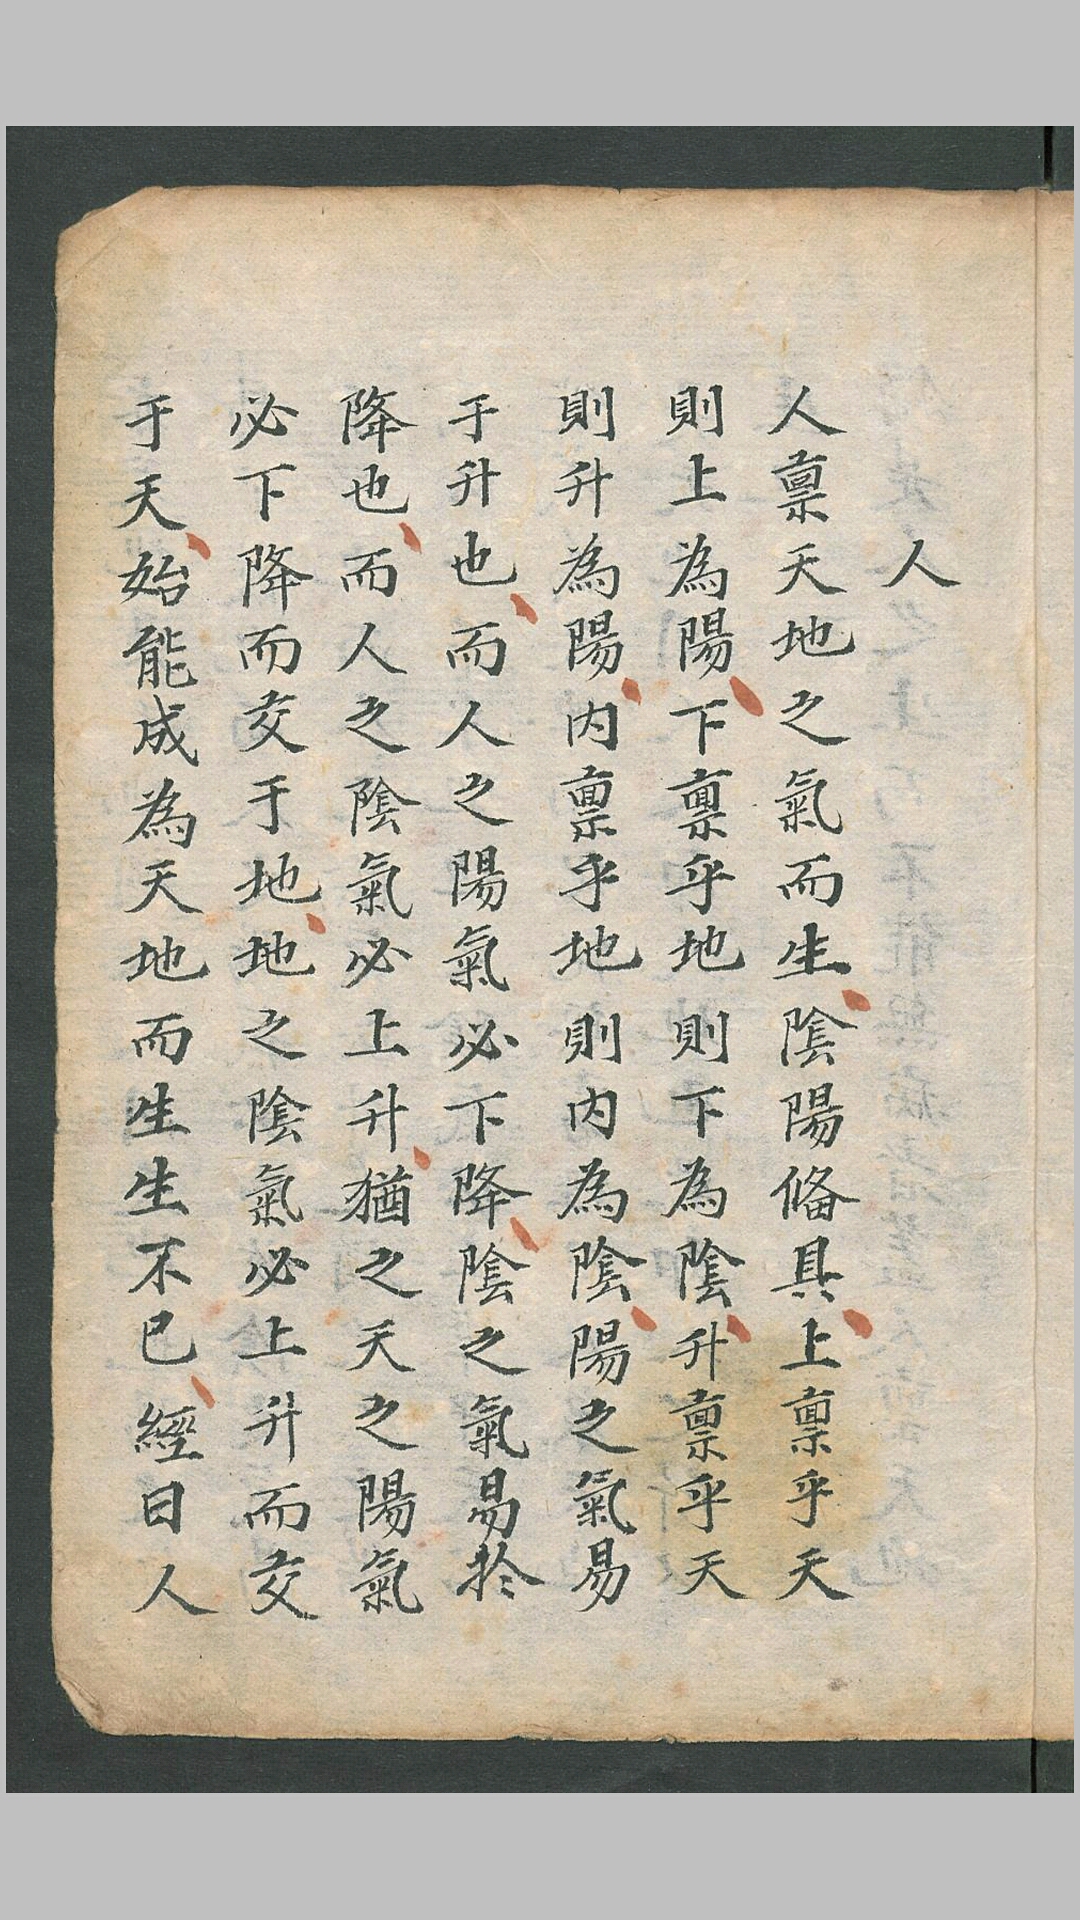 人
人禀天地之氣而生、陰陽俻具、上禀乎天
則上為陽、下禀乎地則下為陰、升禀乎天
則升為陽、内禀乎地則内為陰、陽之氣易
于升也、而人之陽氣必下降、陰之氣易於
降也、而人之陰氣必上升、猶之天之陽氣
必下降而交于地、地之陰氣必上升而交
于天、始能成為天地而生生不已、經曰人